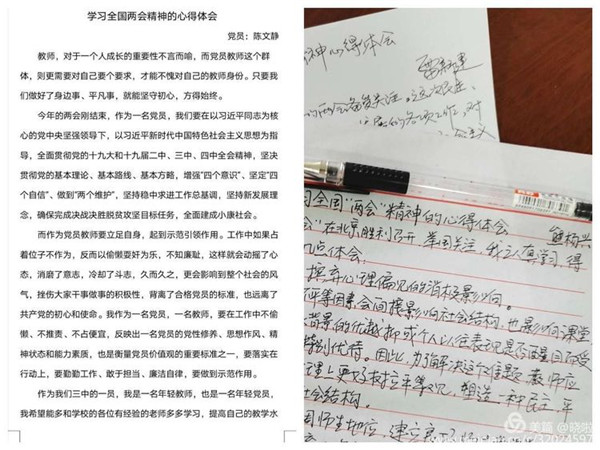 学习全国两会精神的心得体会
党员：陈文静
教师，对于一个人成长的重要性不言而喻，而党员教师这个群
体，则更需要对自己要个要求，才能不愧对自己的教师身份。只要我
们做好了身边事、平凡事，就能坚守初心，方得始终。
今年的两会刚结束，作为一名党员，我们要在以习近平同志为核
心的党中央坚强领导下，以习近平新时代中国特色社会主义思想为指
导，全面贯彻党的十九大和十九届二中、三中、四中全会精神，坚决
贯彻党的基本理论、基本路线、基本方略，增强“四个意识”、坚定“四
个自信”、做到“两个维护”，坚持稳中求进工作总基调，坚持新发展理
念，确保完成决战决胜脱贫攻坚目标任务，全面建成小康社会。
而作为党员教师要立足自身，起到示范引领作用。工作中如果占
着位子不作为，反而以偷懒耍奸为乐，不知廉耻，这样就会动摇了心
态，消磨了意志，冷却了斗志，久而久之，更会影响到整个社会的风
气，挫伤大家干事做事的积极性，背离了合格党员的标准，也远离了
共产党的初心和使命。我作为一名党员，一名教师，要在工作中不偷
懒、不推责、不占便宜，反映出一名党员的党性修养、思想作风、精
神状态和能力素质，也是衡量党员价值观的重要标准之一，要落实在
行动上，要勤勤工作、敢于担当、廉洁自律，要做到示范作用。
作为我们三中的一员，我是一名年轻教师，也是一名年轻党员，
我希望能多和学校的各位有经验的老师多多学习，提高自己的教学水
神心得体会
的两会备受关注。这次民生、
全国“两会”精神的心得体会
会”在北京胜利召开，举国关注，我认真学习，得
几点体会。
摒弃心理偏见的消极影响。
评等因素会间接影响社会结构，也影响课堂，
背景的优越抑或个人以往表现是否醒目而受
特别优待。因此，为了解决这个难题，教师应
塑造一种民主、平
会结构。
师生地位，建立
美篇 @晓啦